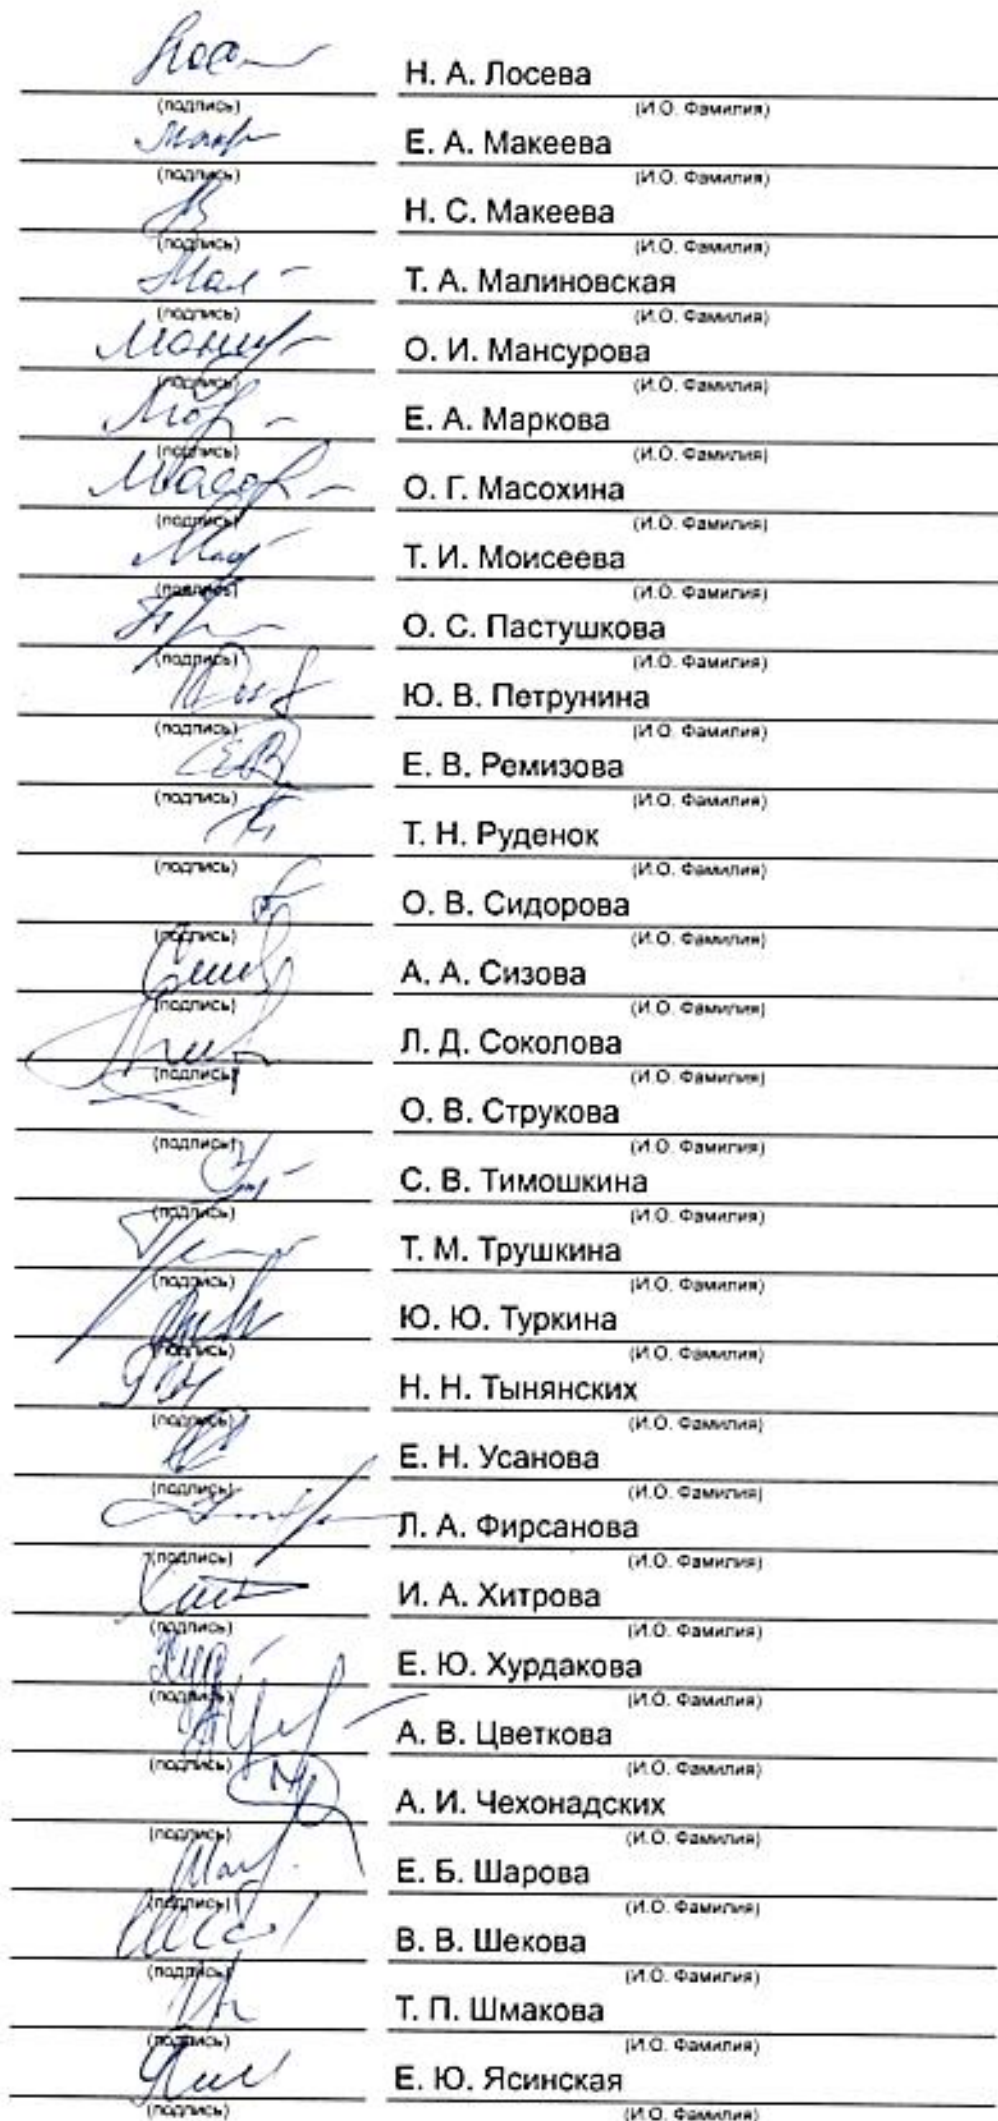 Н. А. Лосева
(подпись) (И.О. Фамилия)
Е. А. Макеева
(подпись) (И.О. Фамилия)
Н. С. Макеева
(подпись) (И.О. Фамилия)
Т. А. Малиновская
(подпись) (И.О. Фамилия)
О. И. Мансурова
(подпись) (И.О. Фамилия)
Е. А. Маркова
(подпись) (И.О. Фамилия)
О. Г. Масохина
(подпись) (И.О. Фамилия)
Т. И. Моисеева
(подпись) (И.О. Фамилия)
О. С. Пастушкова
(подпись) (И.О. Фамилия)
Ю. В. Петрунина
(подпись) (И.О. Фамилия)
Е. В. Ремизова
(подпись) (И.О. Фамилия)
Т. Н. Руденок
(подпись) (И.О. Фамилия)
О. В. Сидорова
(подпись) (И.О. Фамилия)
А. А. Сизова
(подпись) (И.О. Фамилия)
Л. Д. Соколова
(подпись) (И.О. Фамилия)
О. В. Струкова
(подпись) (И.О. Фамилия)
С. В. Тимошкина
(подпись) (И.О. Фамилия)
Т. М. Трушкина
(подпись) (И.О. Фамилия)
Ю. Ю. Туркина
(подпись) (И.О. Фамилия)
Н. Н. Тынянских
(подпись) (И.О. Фамилия)
Е. Н. Усанова
(подпись) (И.О. Фамилия)
Л. А. Фирсанова
(подпись) (И.О. Фамилия)
И. А. Хитрова
(подпись) (И.О. Фамилия)
Е. Ю. Хурдакова
(подпись) (И.О. Фамилия)
А. В. Цветкова
(подпись) (И.О. Фамилия)
А. И. Чехонадских
(подпись) (И.О. Фамилия)
Е. Б. Шарова
(подпись) (И.О. Фамилия)
В. В. Шекова
(подпись) (И.О. Фамилия)
Т. П. Шмакова
(подпись) (И.О. Фамилия)
Е. Ю. Ясинская
(подпись) (И.О. Фамилия)